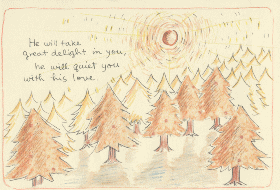 He will take
great delight in you,
he will quiet you
with his love